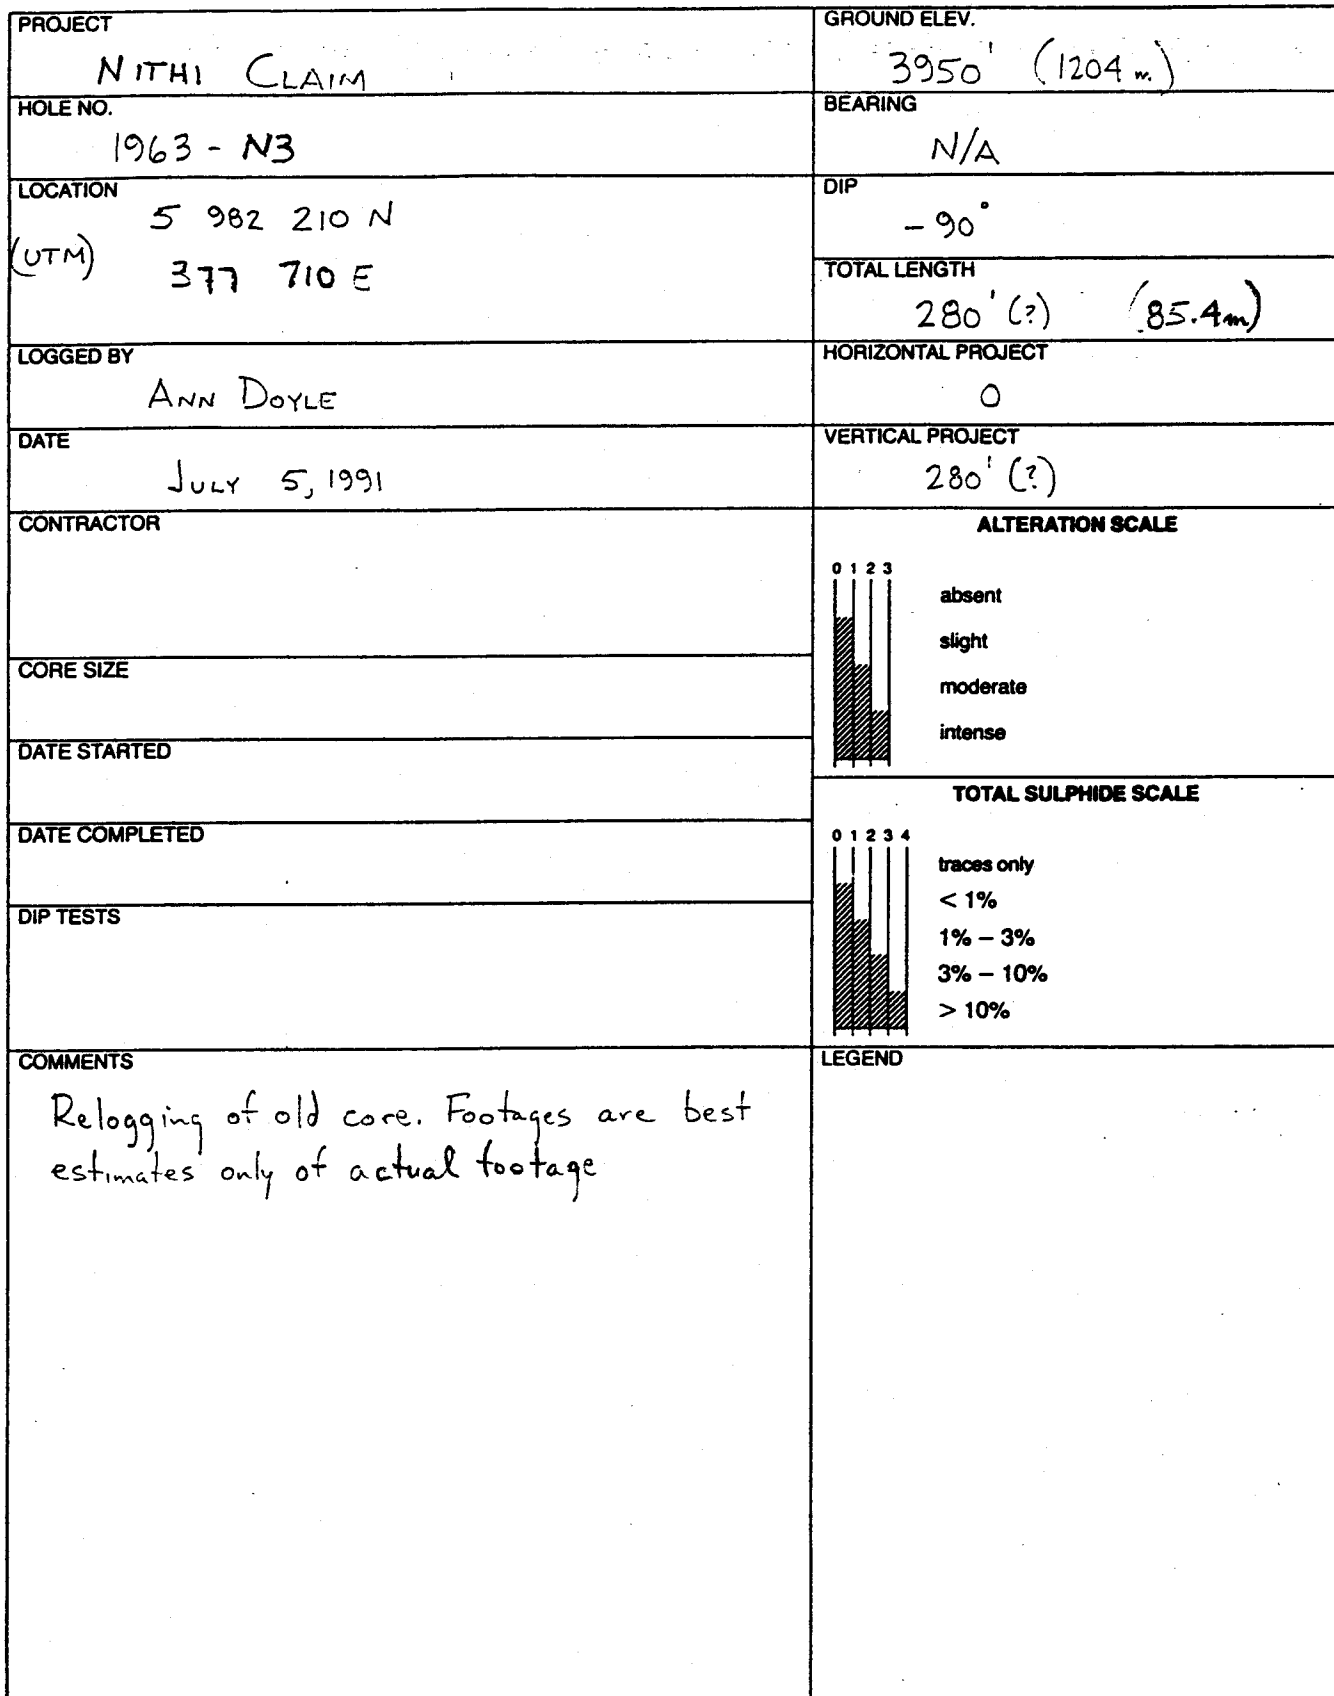 PROJECT
NITHI CLAIM
HOLE NO.
1963 - N3
LOCATION
5 982 210 N
(UTM)
377 710 E
LOGGED BY
ANN DOYLE
DATE
JULY 5, 1991
CONTRACTOR
CORE SIZE
DATE STARTED
DATE COMPLETED
DIP TESTS
COMMENTS
Relogging of old core. Footages are best
estimates only of actual footage
GROUND ELEV.
3950' (1204 m.)
BEARING
N/A
DIP
-90°
TOTAL LENGTH
280' (?) (85.4m)
HORIZONTAL PROJECT
0
VERTICAL PROJECT
280' (?)
ALTERATION SCALE
0 1 2 3
absent
slight
moderate
intense
TOTAL SULPHIDE SCALE
0 1 2 3 4
traces only
< 1%
1% – 3%
3% – 10%
> 10%
LEGEND